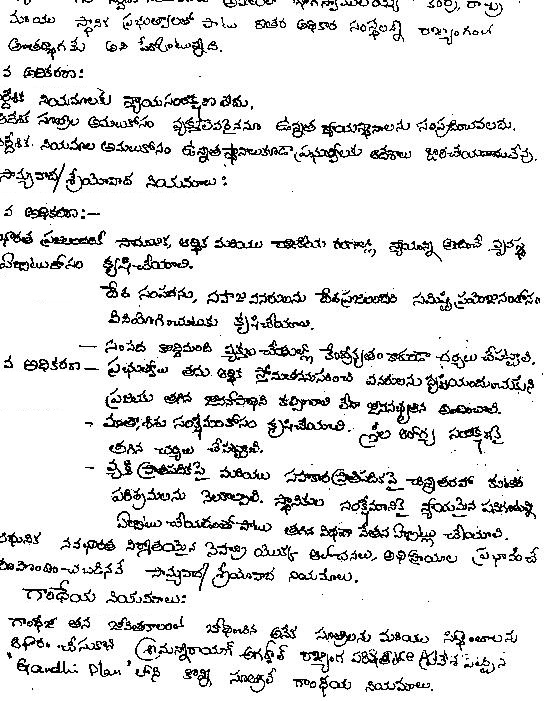 మరియు స్థానిక ప్రభుత్వాలతో పాటు ఇతర అధికార సంస్థలన్నీ రాజ్యంగంలో
అంతర్భాగమే అని పేర్కొంటున్నది.
వ అధికరణ:
నిర్దేశిక నియమాలకు న్యాయసంరక్షణ లేదు.
అమలుకోసం ఉన్నత న్యాయస్థానాలను సంప్రదించవలదు.
నిర్దేశిక నియమాల అమలుకోసం ఉన్నత స్థానాలుకూడా ప్రభుత్వాలకు ఆదేశాలు జారీచేయజాలవు.
సామ్యవాద/శ్రేయోవాద నియమాలు:
వ అధికరణ:-
భారత ప్రజలందరికీ సామాజిక, ఆర్థిక మరియు రాజకీయ రంగాల్లో న్యాయాన్ని అందించే వ్యవస్థ
ఏర్పాటుకోసం కృషిచేయాలి.
దేశ సంపదను, సహజ వనరులను దేశప్రజలందరి సమిష్టి ప్రయోజనంకోసం
వినియోగించుటకు కృషిచేయాలి.
- సంపద కొద్దిమంది వ్యక్తుల చేతుల్లో కేంద్రీకృతం కాకుండా చర్యలు చేపట్టాలి.
వ అధికరణ - ప్రభుత్వాలు తమ ఆర్థిక స్తోమతననుసరించి వనరులను
ప్రజలకు తగిన జీవనోపాధిని కల్పించాలి లేదా జీవనభృతిని అందించాలి.
- మాతా, శిశు సంక్షేమంకోసం కృషిచేయాలి. స్త్రీల ఆరోగ్య సంరక్షణకై
తగిన చర్యలు చేపట్టాలి.
- వ్యక్తి ప్రాతిపదికపై మరియు సహకార ప్రాతిపదికపై చిన్నతరహా కుటీర
పరిశ్రమలను నెలకొల్పాలి. స్థానికుల సంక్షేమానికై న్యాయమైన
ఏర్పాటు చేయడంతోపాటు తగిన విధంగా వేతన ఏర్పాట్లు చేయాలి.
నవభారత నిర్మాతయైన నెహ్రూ యొక్క ఆలోచనలు, అభిప్రాయాల ప్రభావంచే
రూపొందించబడినవే సామ్యవాద/శ్రేయోవాద నియమాలు.
గాంధేయ నియమాలు:
గాంధీజీ తన జీవితకాలంలో బోధించిన అనేక సూత్రాలను మరియు సిద్ధాంతాలను
ఆధారం చేసుకొని శ్రీమన్నారాయణ్ అగర్వాల్ రాజ్యాంగ పరిషత్‌లో ప్రవేశ పెట్టిన
'Gandhi Plan' లోని కొన్ని సూత్రాలే గాంధేయ నియమాలు.